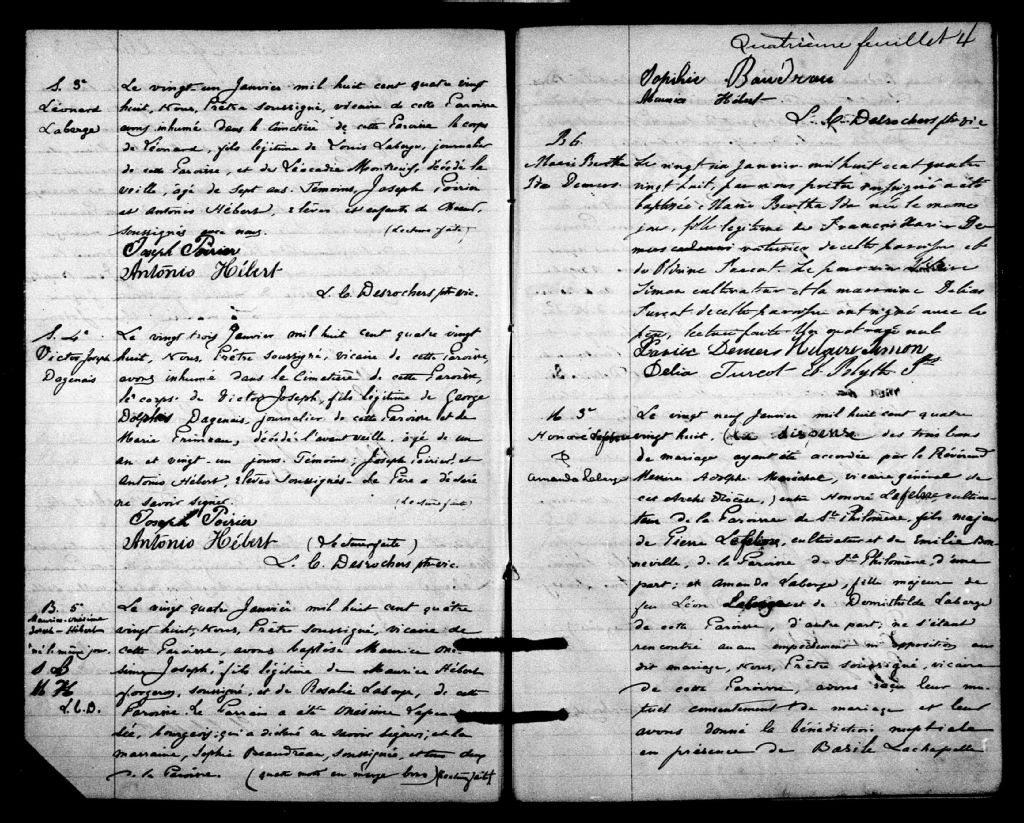 S. 3e
Léonard
Laberge
Le vingt un Janvier mil huit cent quatre vingt
huit, Nous, Prêtre soussigné, vicaire de cette Paroisse
avons inhumé dans le Cimetière de cette Paroisse le corps
de Léonard, fils légitime de Louis Laberge, journalier
de cette Paroisse, et de Léocadie décédé la
veille, agé de sept ans. Témoins, Joseph Poirier
et Antonio Hébert, élèves et enfants de Chœur,
soussignés avec nous. (Lecture faite)
Joseph Poirier
Antonio Hébert
L. C. Desrochers ptre vic.
S. 4e
Victor Joseph
Dagenais
Le vingt trois Janvier mil huit cent quatre vingt
huit, Nous, Prêtre Soussigné, vicaire de cette Paroisse,
avons inhumé dans le Cimetière de cette Paroisse,
le corps de Victor Joseph, fils légitime de George
Dolphis Dagenais, journalier de cette Paroisse et de
Marie Primeau, décédé l'avant veille, agé de un
an et vingt-un jours. Témoins, Joseph Poirier et
Antonio Hébert, élèves soussignés. Le Père a déclaré
ne savoir signer. (Lecture faite)
Joseph Poirier
Antonio Hébert (Lecture faite)
L. C. Desrochers ptre vic.
B. 5e
Maurice-Onésime
Joseph-Hébert
"né le même jour.
S B
M H
L. C. D.
Le vingt quatre Janvier mil huit cent quatre
vingt huit, Nous, Prêtre soussigné, vicaire de
cette Paroisse, avons baptisé Maurice Oné-
sime Joseph," fils légitime de Maurice Hébert
forgeron, soussigné, et de Rosalie Laberge, de cette
Paroisse. Le Parrain a été Onésime
bourgeois, qui a déclaré ne savoir signer, et la
marraine, Sophie Beaudreau, soussignée, et tous deux
de la Paroisse. (quatre mots en marge bons) (Lecture faite)
Quatrième feuillet 4
Sophie Baudreau
Maurice Hébert
L. C. Desrochers ptre vic
B 6
Marie Bertha
Ida Demers
Le vingt six Janvier mil huit cent quatre
vingt huit, par nous prêtre soussigné a été
baptisée Marie Bertha Ida née le même
jour, fille légitime de François Xavier De-
mers de cette paroisse et
de Turcot. Le parrain
Simon cultivateur et la marraine Délia
Turcot de cette paroisse ont signé avec le
père, lecture faite. Un mot rayé nul
Xavier Demers Hilgire Simon
Délia Turcot
M 3e
Honoré Lefebvre
&
Amanda Laberge
Le vingt neuf Janvier mil huit cent quatre
vingt huit, (la dispense des trois bans
de mariage ayant été accordée par le Révérend
Messire Adolphe Maréchal, vicaire général de
cet Archi Diocèse,) entre Honoré Lefebvre cultiva-
teur de la Paroisse de Ste Philomène, fils majeur
de Pierre Lefebvre, cultivateur et de Emilie Bon-
neville, de la Paroisse de Ste Philomène, d'une
part; et Amanda Laberge, fille majeure de
feu Léon Laberge et de Domithilde Laberge
de cette Paroisse, d'autre part, ne s'étant
rencontré aucun empêchement ni opposition au
dit mariage, Nous, Prêtre soussigné, vicaire
de cette Paroisse, avons reçu leur mu-
tuel consentement de mariage et leur
avons donné la bénédiction nuptiale
en présence de Basile Lachapelle